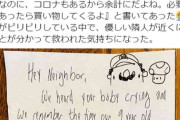 なのに、コロナもあるから余計だよね。必要
あったら買い物してくるよ』と書いてあった
がピリピリしている中で、優しい隣人が近くに
とが分かって救われた気持ちになった。
Hey Neighbor,
We heard your baby crying and
we remember the